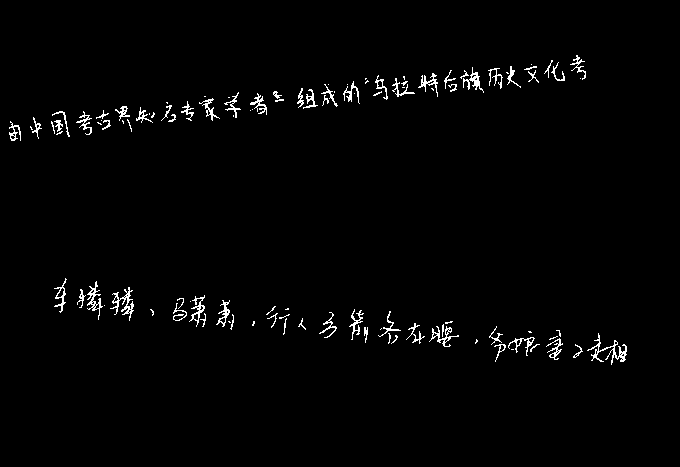 由中国考古界知名专家学者组成的“乌拉特后旗历史文化考
车辚辚，马萧萧，行人弓箭各在腰，爷娘妻子走相